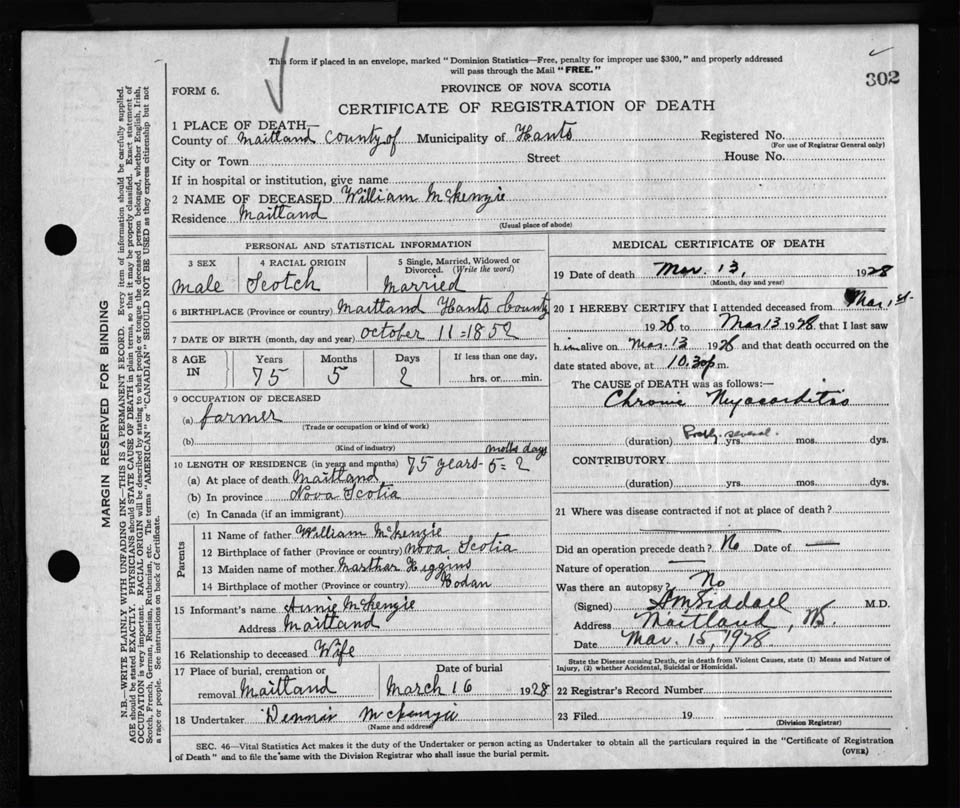 This form if placed in an envelope, marked "Dominion Statistics—Free, penalty for improper use $300," and properly addressed
will pass through the Mail "FREE."
302
FORM 6.
PROVINCE OF NOVA SCOTIA
CERTIFICATE OF REGISTRATION OF DEATH
1 PLACE OF DEATH—
County of Maitland County of Municipality of Hants Registered No.
(For use of Registrar General only)
City or Town Street House No.
If in hospital or institution, give name
2 NAME OF DECEASED William McKenzie
Residence Maitland
(Usual place of abode)
PERSONAL AND STATISTICAL INFORMATION
3 SEX 4 RACIAL ORIGIN 5 Single, Married, Widowed or
Divorced. (Write the word)
male Scotch married
6 BIRTHPLACE (Province or country) Maitland Hants County
7 DATE OF BIRTH (month, day and year) October 11=1852
8 AGE IN Years Months Days If less than one day,
75 5 2 hrs. or min.
9 OCCUPATION OF DECEASED
(a) farmer
(Trade or occupation or kind of work)
(b)
(Kind of industry)
days
10 LENGTH OF RESIDENCE (in years and months) 75 years-5=2
(a) At place of death Maitland
(b) In province Nova Scotia
(c) In Canada (if an immigrant)
Parents
11 Name of father William McKenzie
12 Birthplace of father (Province or country) nova Scotia
13 Maiden name of mother Marthar Higgins
14 Birthplace of mother (Province or country)
15 Informant's name Annie McKenzie
Address Maitland
16 Relationship to deceased Wife
17 Place of burial, cremation or Date of burial
removal Maitland March 16 1928
18 Undertaker Dennis McKenzie
(Name and address)
MEDICAL CERTIFICATE OF DEATH
19 Date of death Mar. 13, 1928
(Month, day and year)
20 I HEREBY CERTIFY that I attended deceased from Mar 1st
1928 to Mar 13 1928, that I last saw
him alive on Mar. 13 1928 and that death occurred on the
date stated above, at 10.30 p m.
The CAUSE of DEATH was as follows:—
Chronic Myocarditis
(duration) Probly. several. yrs. mos. dys.
CONTRIBUTORY
(duration) yrs. mos. dys.
21 Where was disease contracted if not at place of death?
Did an operation precede death? No Date of —
Nature of operation —
Was there an autopsy? No
(Signed) Siddall M.D.
Address Maitland, NS.
Date Mar. 15, 1928
State the Disease causing Death, or in death from Violent Causes, state (1) Means and Nature of
Injury, (2) whether Accidental, Suicidal or Homicidal.
22 Registrar's Record Number
23 Filed 19
(Division Registrar)
SEC. 46—Vital Statistics Act makes it the duty of the Undertaker or person acting as Undertaker to obtain all the particulars required in the "Certificate of Registration
of Death" and to file the same with the Division Registrar who shall issue the burial permit. (OVER)
MARGIN RESERVED FOR BINDING
N.B.—WRITE PLAINLY WITH UNFADING INK—THIS IS A PERMANENT RECORD. Every item of information should be carefully supplied.
AGE should be stated EXACTLY. PHYSICIANS should STATE CAUSE OF DEATH in plain terms, so that it may be properly classified. Exact statement of
OCCUPATION is very important. RACIAL ORIGIN will be described by stating to what people or tongue the deceased person belonged, whether English, Irish,
Scotch, French, German, Russian, Ruthenian, etc. The terms "AMERICAN" or "CANADIAN" SHOULD NOT BE USED as they express citizenship but not
a race or people. See instructions on back of Certificate.